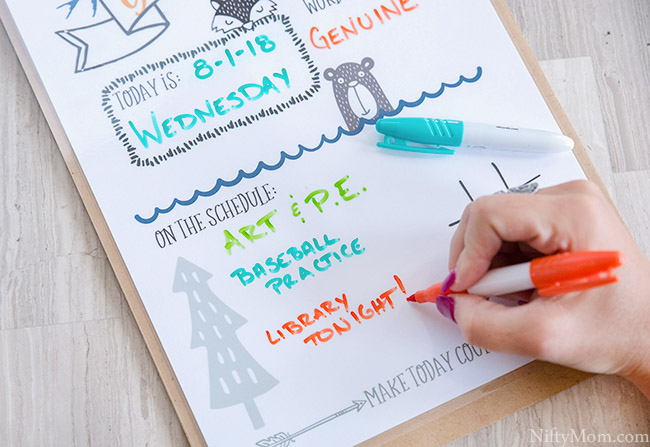 WORD
GENUINE
TODAY IS: 8-1-18
WEDNESDAY
ON THE SCHEDULE:
ART & P.E.
BASEBALL
PRACTICE
LIBRARY
TONIGHT!
MAKE TODAY COU
NiftyMom.com